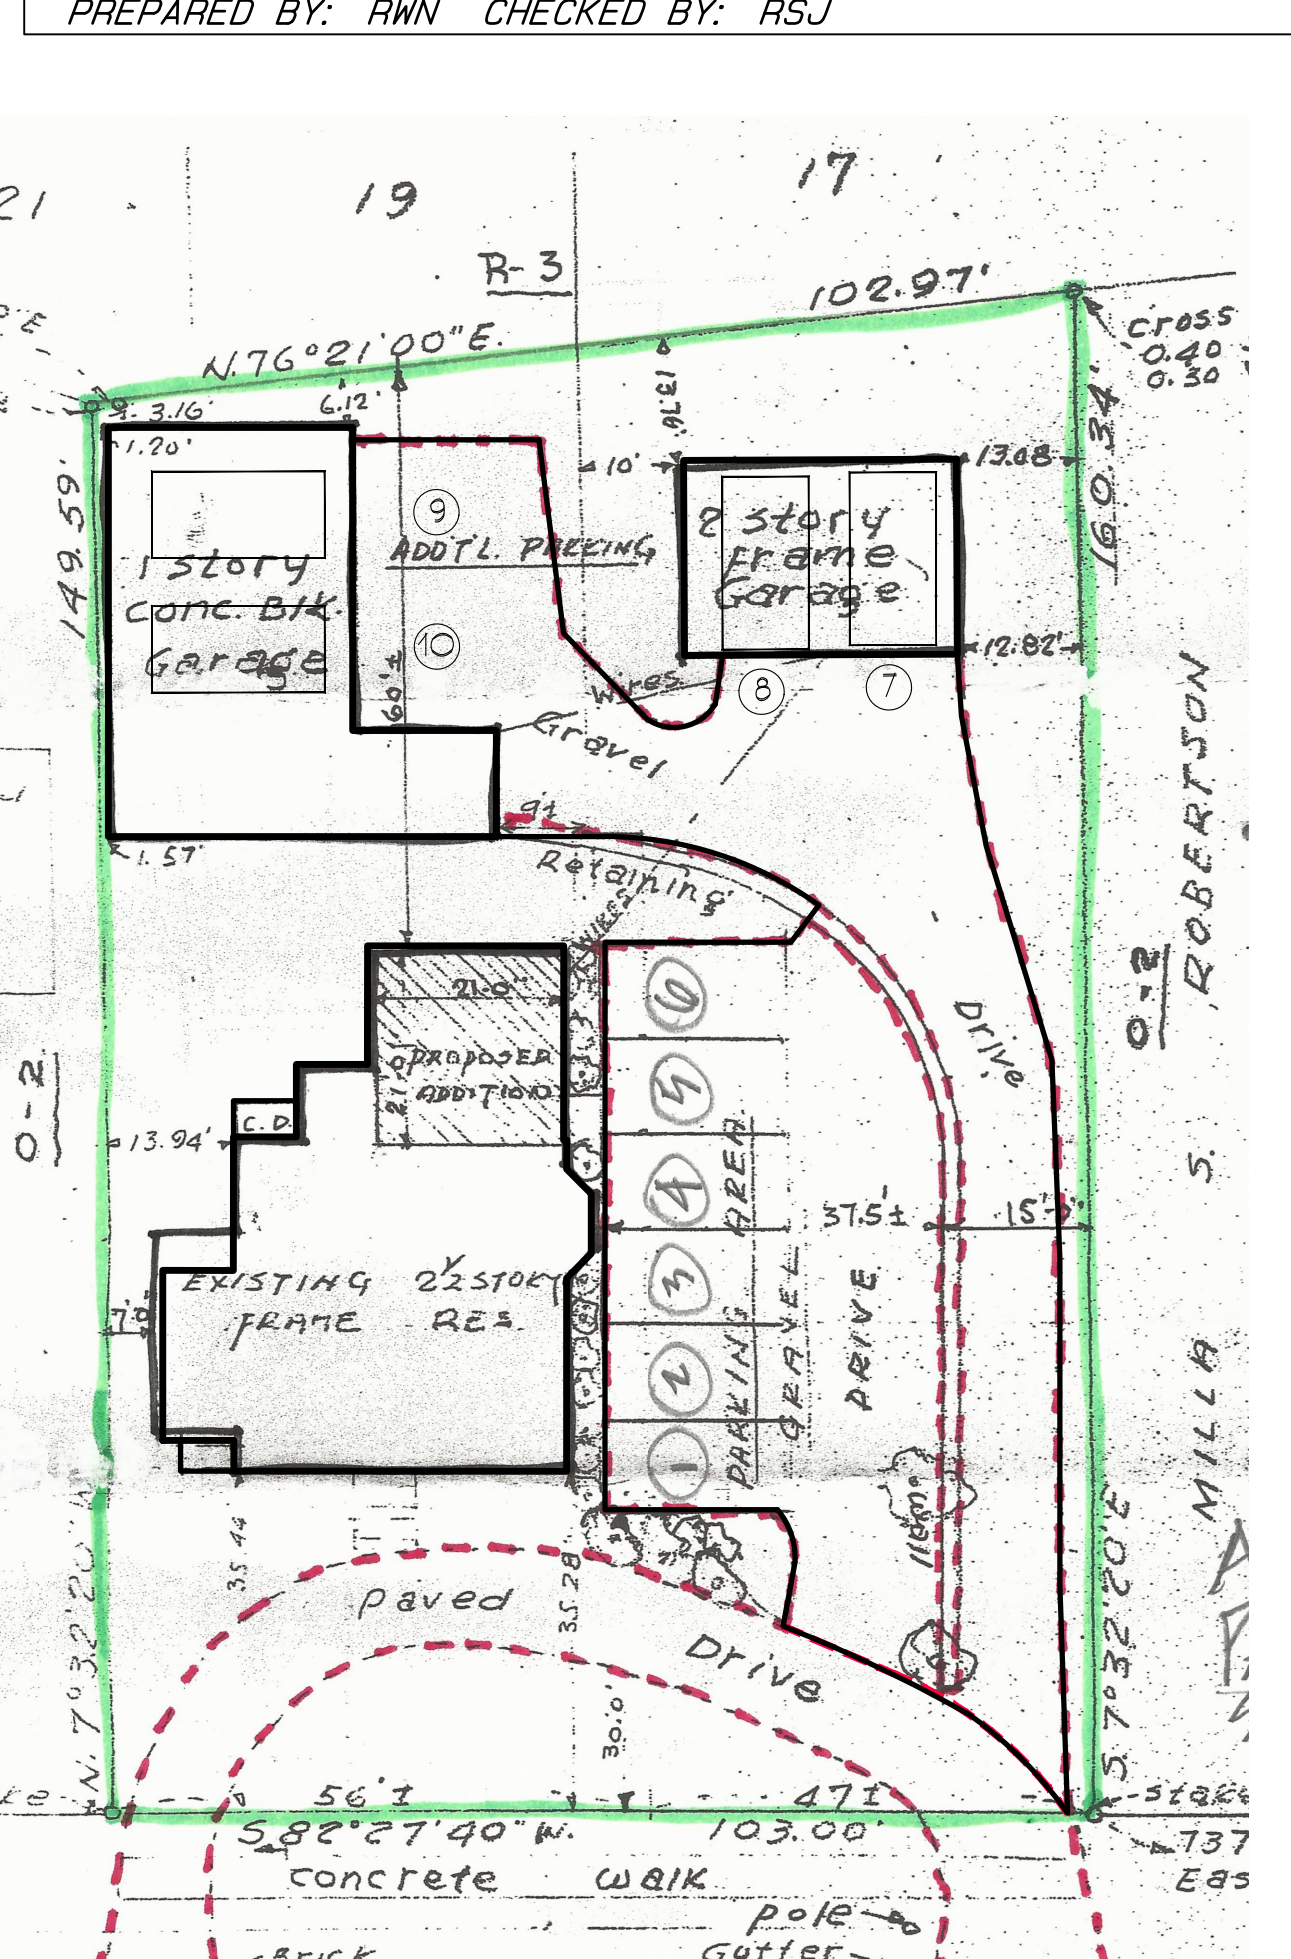 PREPARED BY: RWN CHECKED BY: RSJ
21
19
17
R-3
102.97'
N.76°21'00"E.
cross
0.40
0.30
3.16'
6.12'
13.76'
1.20'
10'
13.08
149.59'
160.34'
9
ADDT'L. PARKING
2 story
Frame
Garage
1 story
Conc. Blk.
Garage
10
60'±
Wires
8
7
12.82'
Gravel
9'±
1.57'
Retaining
Wires
O-2
S. ROBERTSON
MILLA
Drive
21.0'
21.0'
PROPOSED
ADDITION
C.D.
O-2
13.94'
6
5
4
3
2
1
PARKING AREA
GRAVEL
DRIVE
37.5'±
15'-0"
EXISTING 2½ STORY
FRAME RES.
7'0"
Wall
35.44
35.28
Paved
Drive
30.0'
N. 7°32'20"W
S. 7°32'20"E
56'±
47±
stake
S 82°27'40"W.
103.00'
737
concrete walk
Eas
pole
Brick
Gutter